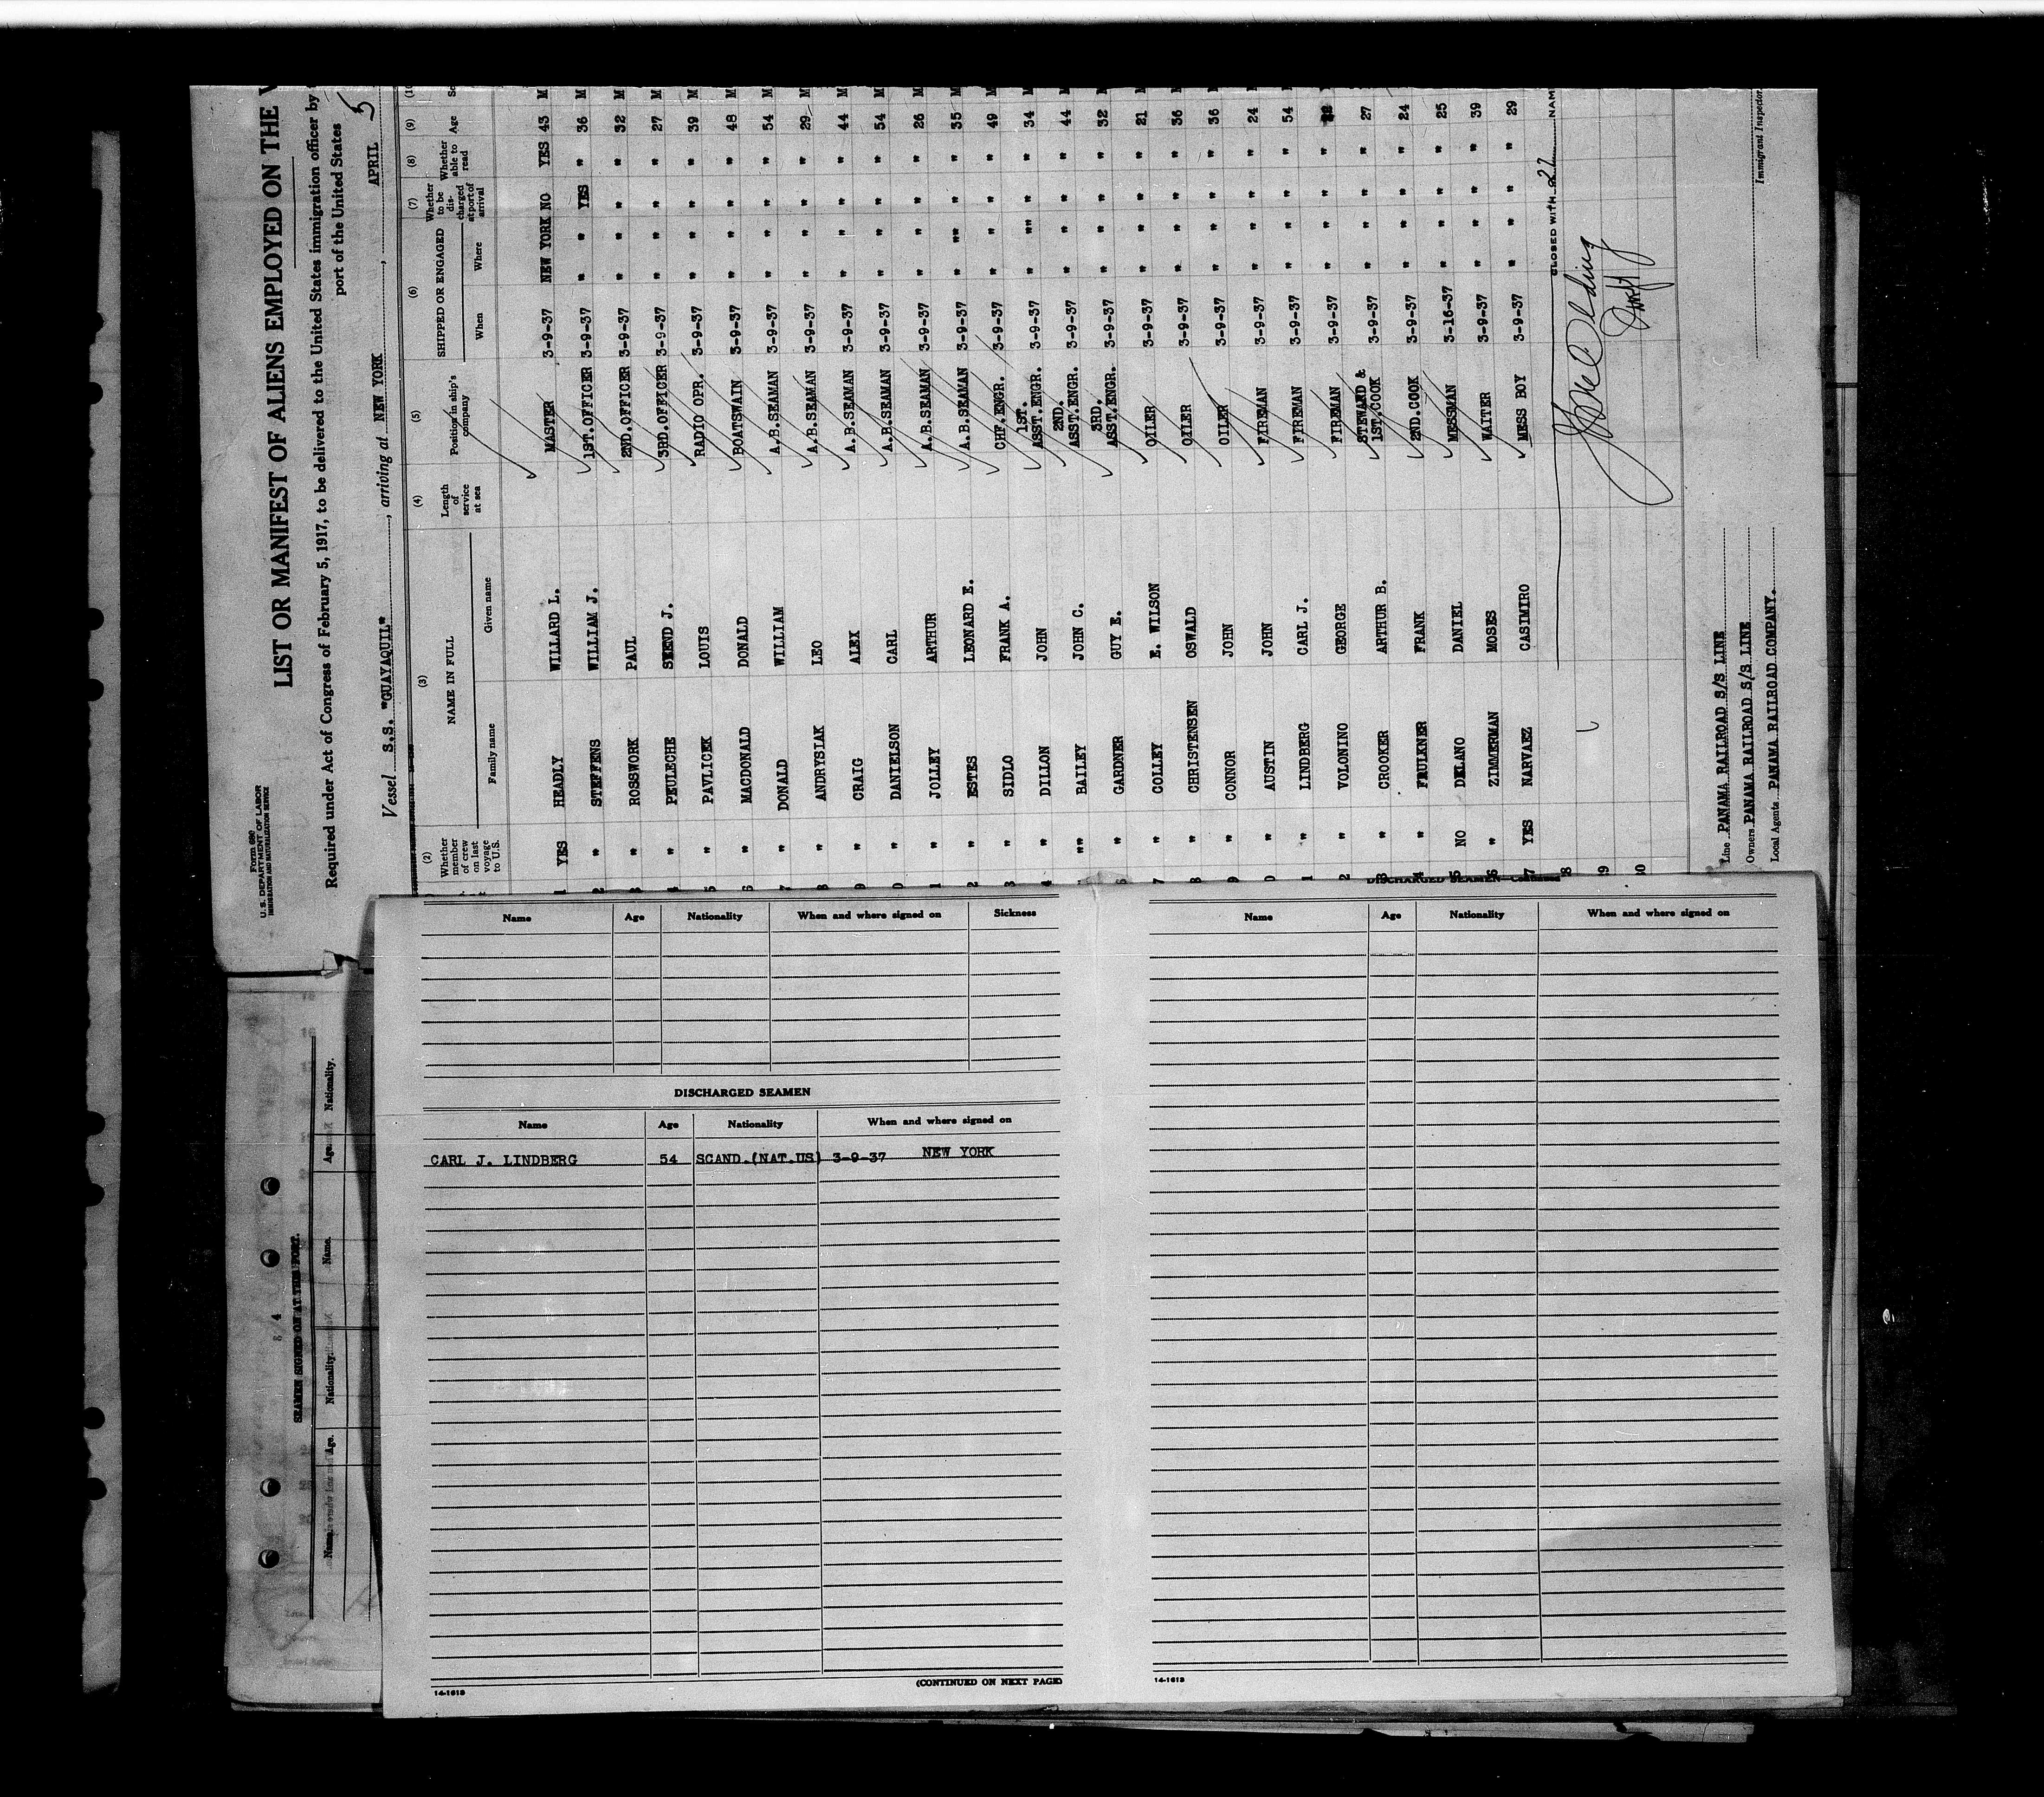 Form 680
U.S. DEPARTMENT OF LABOR
IMMIGRATION AND NATURALIZATION SERVICE
LIST OR MANIFEST OF ALIENS EMPLOYED ON THE
Required under Act of Congress of February 5, 1917, to be delivered to the United States immigration officer by
port of the United States
Vessel S.S. "GUAYAQUIL", arriving at NEW YORK, APRIL 5
(2) (3) (4) (5) (6) (7) (8) (9)
Whether member of crew on last voyage to U.S. NAME IN FULL Family name Given name Length of service at sea Position in ship's company SHIPPED OR ENGAGED When Where Whether to be discharged at port of arrival Whether able to read Age
1 YES HEADLY WILLARD L. MASTER 3-9-37 NEW YORK NO YES 43 M
2 " STEFFENS WILLIAM J. 1ST.OFFICER 3-9-37 " " YES " 36 M
3 " ROSSWORK PAUL 2ND.OFFICER 3-9-37 " " " " 32 M
4 " PEULECHE SVEND J. 3RD.OFFICER 3-9-37 " " " " 27 M
5 " PAVLICEK LOUIS RADIO OPR. 3-9-37 " " " " 39 M
6 " MACDONALD DONALD BOATSWAIN 3-9-37 " " " " 48 M
7 " DONALD WILLIAM A.B.SEAMAN 3-9-37 " " " " 54 M
8 " ANDRYSIAK LEO A.B.SEAMAN 3-9-37 " " " " 29 M
9 " CRAIG ALEX A.B.SEAMAN 3-9-37 " " " " 44 M
0 " DANIELSON CARL A.B.SEAMAN 3-9-37 " " " " 54 M
1 " JOLLEY ARTHUR A.B.SEAMAN 3-9-37 " " " " 26 M
2 " ESTES LEONARD E. A.B.SEAMAN 3-9-37 " " " " 35 M
3 " SIDLO FRANK A. CHF.ENGR. 3-9-37 " " " " 49 M
4 " DILLON JOHN 1ST. ASST.ENGR. 3-9-37 " " " " 34 M
" BAILEY JOHN C. 2ND. ASST.ENGR. 3-9-37 " " " " 44 M
6 " GARDNER GUY E. 3RD. ASST.ENGR. 3-9-37 " " " " 32 M
7 " COLLEY E. WILSON OILER 3-9-37 " " " " 21 M
8 " CHRISTENSEN OSWALD OILER 3-9-37 " " " " 36 M
9 " CONNOR JOHN OILER 3-9-37 " " " " 36 M
0 " AUSTIN JOHN FIREMAN 3-9-37 " " " " 24
1 " LINDBERG CARL J. FIREMAN 3-9-37 " " " " 54
2 " VOLONINO GEORGE FIREMAN 3-9-37 " " " "
3 " CROOKER ARTHUR B. STEWARD & 1ST.COOK 3-9-37 " " " " 27
4 " FAULKNER FRANK 2ND.COOK 3-9-37 " " " " 24
5 NO DELANO DANIEL MESSMAN 3-16-37 " " " " 25
6 " ZIMMERMAN MOSES WAITER 3-9-37 " " " " 39
7 YES NARVAEZ CASIMIRO MESS BOY 3-9-37 " " " " 29
28
29
30
CLOSED WITH 27 NAM
Line PANAMA RAILROAD S/S LINE
Owners PANAMA RAILROAD S/S LINE
Local Agents PANAMA RAILROAD COMPANY.
Immigrant Inspector.
SEAMEN SIGNED ON AT THIS PORT.
Name. Age. Nationality. Name. Age. Nationality.
Name Age Nationality When and where signed on Sickness
DISCHARGED SEAMEN
Name Age Nationality When and where signed on
CARL J. LINDBERG 54 SCAND.(NAT.US) 3-9-37 NEW YORK
(CONTINUED ON NEXT PAGE)
14-1613
DISCHARGED SEAMEN—Continued
Name Age Nationality When and where signed on
14-1613